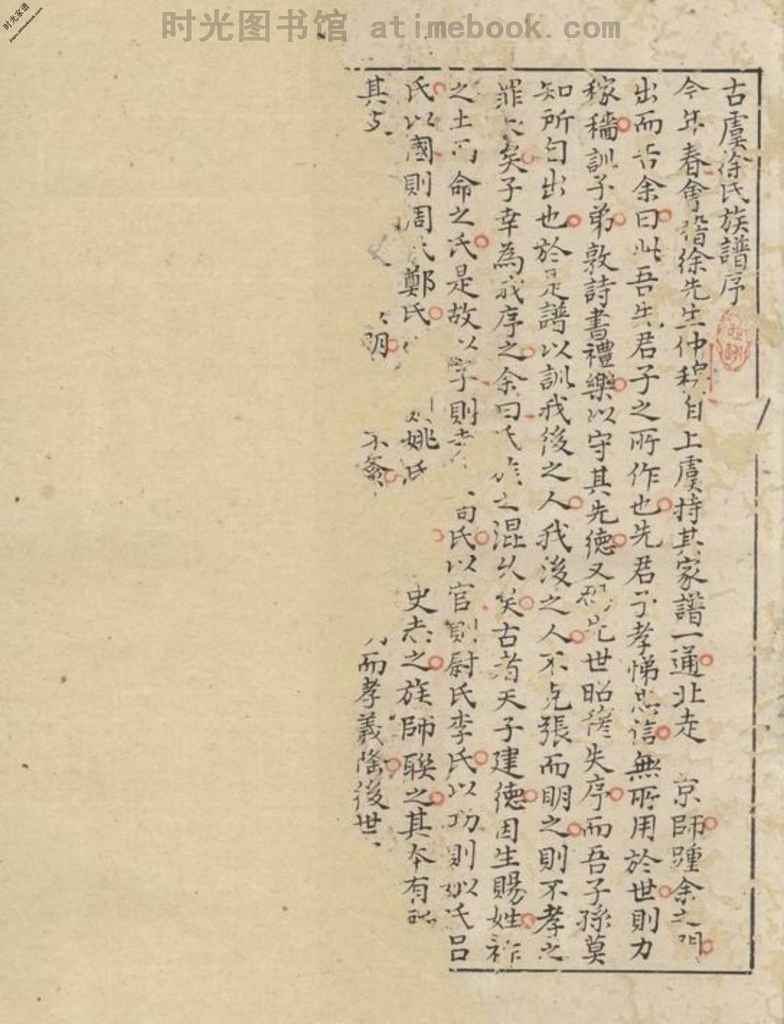 时光图书馆 atimebook.com
时光家谱
古虞徐氏族譜序
今年春會稽徐先生仲稷自上虞持其家譜一通北走 京師踵余之門
出而告余曰此吾先君子之所作也先君子孝悌忠信無所用於世則力
稼穡訓子弟敦詩書禮樂以守其先德又恐先世昭穆失序而吾子孫莫
知所自出也於是譜以訓我後之人我後之人不克張而明之則不孝之
罪大矣子幸為我序之余曰氏族之混久矣古者天子建德因生賜姓祚
之土而命之氏是故以字則 氏以官則尉氏李氏以功則 氏呂
氏以國則周氏鄭氏 姚氏 史 之族師聯之其本有
其 明 不 而孝義 後世